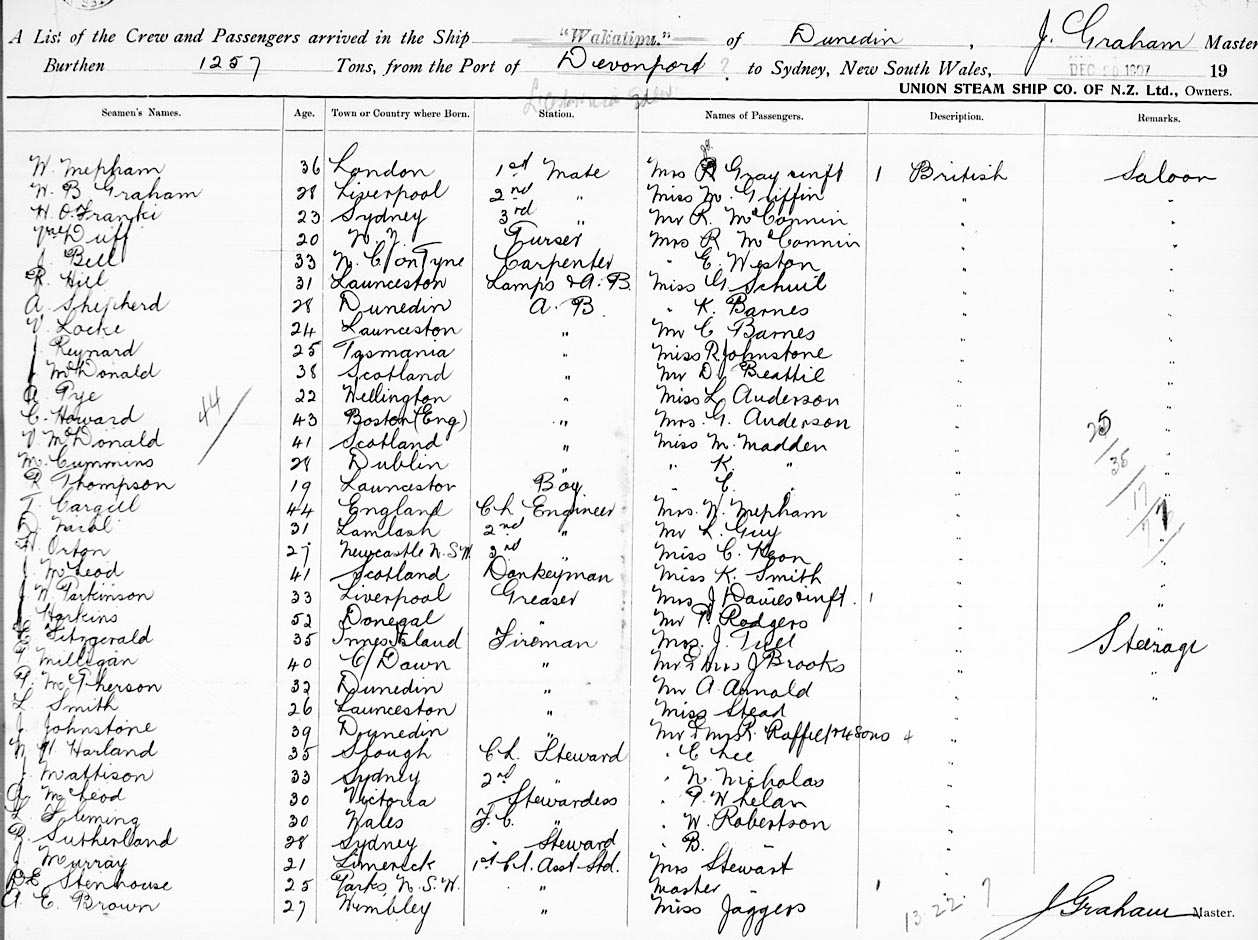 A List of the Crew and Passengers arrived in the Ship "Wakatipu." of Dunedin, J. Graham Master
Burthen 1257 Tons, from the Port of Devonport ? to Sydney, New South Wales, DEC 1907 19
UNION STEAM SHIP CO. OF N.Z. Ltd., Owners.
Seamen's Names. Age. Town or Country where Born. Station. Names of Passengers. Description. Remarks.
W. Mepham 36 London 1st Mate Mrs R Gray & inft 1 British Saloon
W. B Graham 28 Liverpool 2nd " Miss M. Griffin " "
H. O. Franki 23 Sydney 3rd Mr R. McConnin " "
Wm Duff 20 N. Z. Purser Mrs R McConnin " "
J. Bell 33 N. C/on Tyne Carpenter " E. Weston " "
R. Hill 31 Launceston Lamps & A. B. Miss G Schuil " "
A. Shepherd 28 Dunedin A. B. " K. Barnes " "
V. Locke 24 Launceston " Mr C Barnes " "
Reynard 25 Tasmania " Miss R Johnstone " "
McDonald 38 Scotland " Mr D. Beattie " "
A. Pye 22 Wellington " Miss L Anderson " "
C. Howard 44 43 Boston (Eng) " Mrs. G. Anderson " 25 "
V. McDonald 41 Scotland " Miss M. Madden " "
M. Cummins 28 Dublin " " K. " " 35 "
R Thompson 19 Launceston Boy " C. " " "
T. Cargill 44 England Ch Engineer Mrs. W. Mepham " 17 "
31 Lamlash 2nd " Mr L. Guy " 77
Orton 27 Newcastle N. S. W. 3rd " Miss C. Keon " "
McLeod 41 Scotland Donkeyman Miss K. Smith " "
W. Parkinson 33 Liverpool Greaser Mrs J Davies & inft. 1 "
Harkins 52 Donegal " Mr P. Rodgers " "
Fitzgerald 35 Innes Island Fireman Mrs. J. Tuel " Steerage
Milligan 40 C/ Dawn " Mr & Mrs J Brooks " "
McPherson 32 Dunedin " Mr A. Arnold " "
L. Smith 26 Launceston " Miss Stead "
J. Johnstone 39 Dunedin " Mr & Mrs R. Raffiel & 4 Sons 4 "
Harland 35 Slough Ch. Steward " C Lee "
J. Mattison 33 Sydney 2nd " " N. Nicholas "
A. McLeod 30 Victoria Stewardess " P. Whelan "
L. Fleming 30 Wales F. C. " " W. Robertson "
R. Sutherland 28 Sydney " Steward " B. " "
J. Murray 21 Limerick 1st Cl. Asst. Std. Mrs Stewart "
Stenhouse 25 Parks N. S. W. " Master " 1 "
A. E. Brown 27 Wembley " Miss Jaggers 13. 22. 7 J Graham Master.